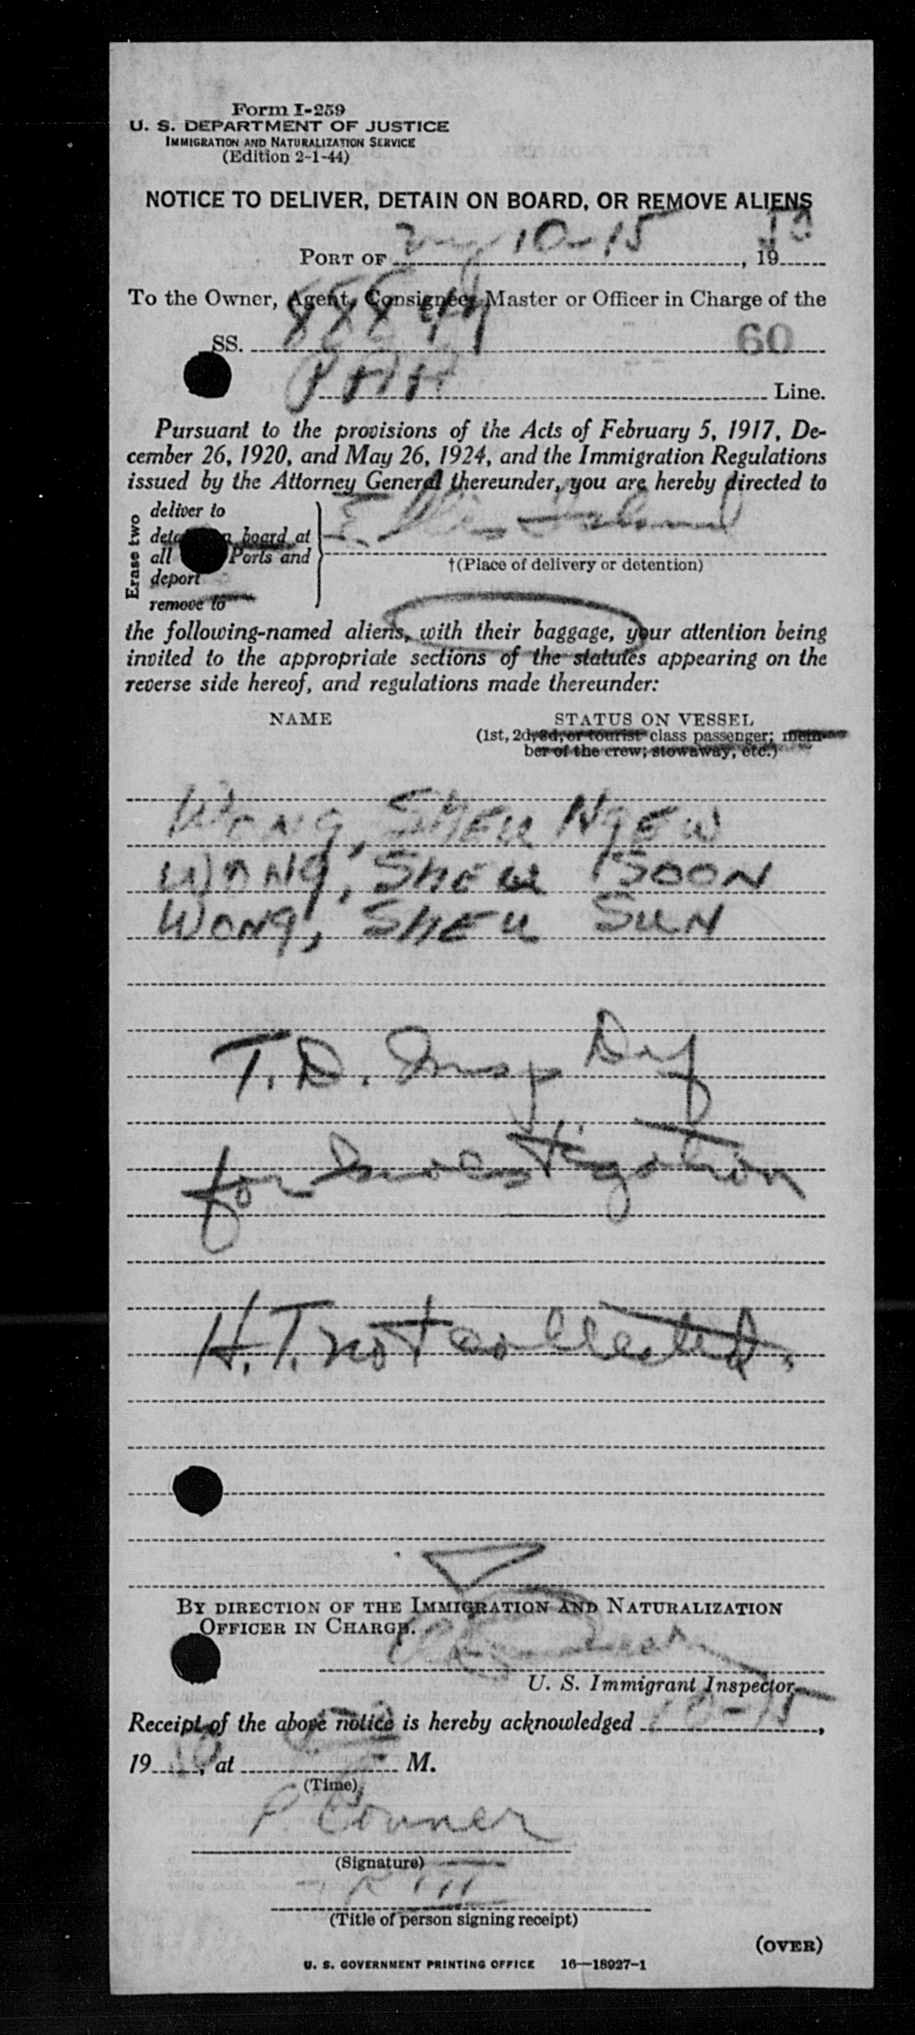 Form I-259
U. S. DEPARTMENT OF JUSTICE
IMMIGRATION AND NATURALIZATION SERVICE
(Edition 2-1-44)
NOTICE TO DELIVER, DETAIN ON BOARD, OR REMOVE ALIENS
PORT OF NY 10-15, 1950
To the Owner, Agent, Consignee, Master or Officer in Charge of the
SS. 88844 60
PAA Line.
Pursuant to the provisions of the Acts of February 5, 1917, De-
cember 26, 1920, and May 26, 1924, and the Immigration Regulations
issued by the Attorney General thereunder, you are hereby directed to
Erase two
deliver to
detain on board at
all Ports and
deport
remove to
Ellis Island
†(Place of delivery or detention)
the following-named aliens, with their baggage, your attention being
invited to the appropriate sections of the statutes appearing on the
reverse side hereof, and regulations made thereunder:
NAME STATUS ON VESSEL
(1st, 2d, 3d, or tourist class passenger; mem-
ber of the crew; stowaway, etc.)
WONG, SHEU NGEW
WONG, SHEW SOON
WONG, SHEU SUN
T. D. Insp Def
for Investigation
H. T. not collected.
BY DIRECTION OF THE IMMIGRATION AND NATURALIZATION
OFFICER IN CHARGE.
U. S. Immigrant Inspector.
Receipt of the above notice is hereby acknowledged 10-15,
1950, at M.
(Time)
P. Conner
(Signature)
(Title of person signing receipt)
(OVER)
U. S. GOVERNMENT PRINTING OFFICE 16—18927-1